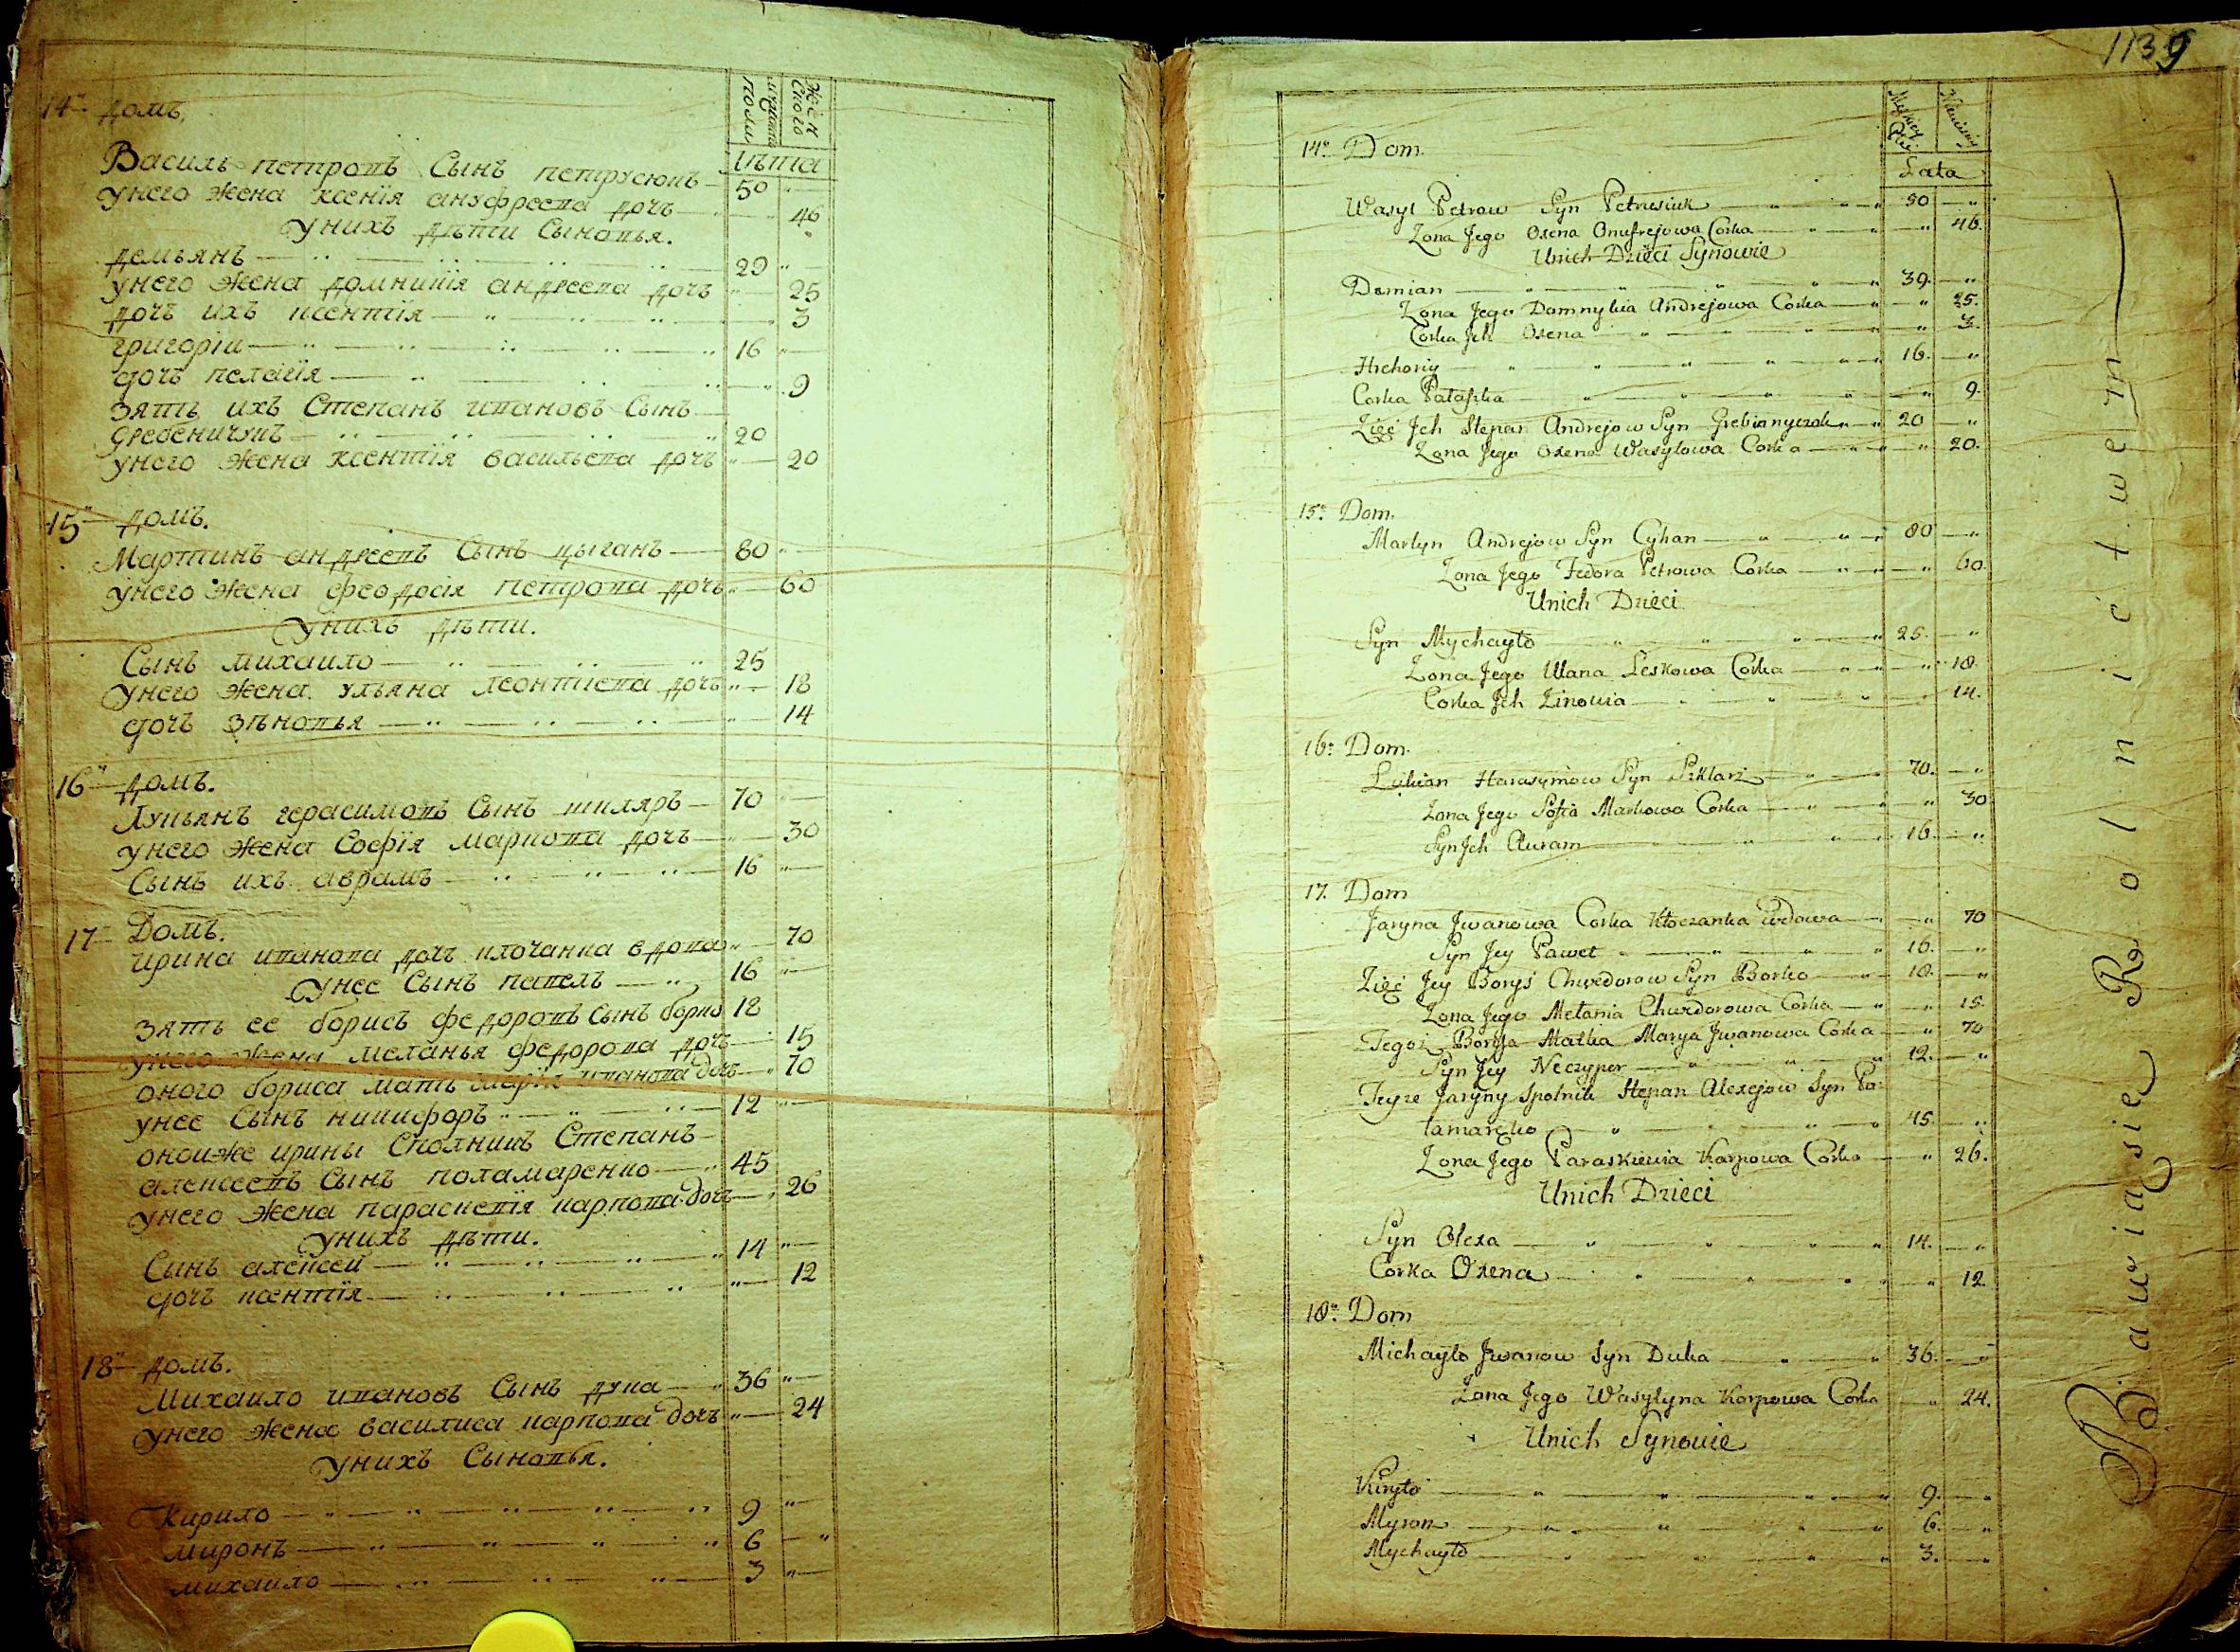 14 домъ.
мужеска пола
женского
лѣта
Василь петровъ Сынъ петрусюкъ — 50 "
унего жена ксенїя ануфреева дочь — " 46
унихъ дѣти Сыновья.
демьянъ — 29 "
унего жена домникїя андреева дочь " — 25
дочь ихъ ксентїя — " 3
григорїи — 16 "
дочь пелагїя — " 9
зять ихъ Степанъ ивановъ Сынъ
гребеничукъ — 20
унего жена ксентїя васильева дочь " — 20
15 домъ.
Мартинъ андреевъ Сынъ цыганъ — 80 "
унего жена феодосїя петрова дочь " — 60
унихъ дѣти.
Сынъ михаило — 25
унего жена ульяна леонтїева дочь " — 18
дочь зѣновья — " 14
16 домъ.
Лукьянъ герасимовъ Сынъ шкляръ — 70 —
унего жена Софїя маркова дочь — " 30
Сынъ ихъ аврамъ — 16 "
17 Домъ.
ирина иванова дочь клочанка вдова " — 70
унее Сынъ павелъ — " 16 "
зять ее борисъ федоровъ Сынъ борко 18
унего жена меланья федорова дочь — 15
оного бориса мать марїя иванова дочь — " 70
унее Сынъ никифоръ — 12 "
оноиже ирины Сполникъ Степанъ
алексеевъ Сынъ поламаренко — 45
унего жена параскевїя карпова дочь — " 26
унихъ дѣти.
Сынъ алексей — 14 "
дочь ксентїя — " 12
18 домъ.
Михаило ивановъ Сынъ дука — 36 "
унего жена василиса карпова дочь " — 24
унихъ Сыновья.
Кирило — 9 "
миронъ — 6 — "
михаило — 3 "
1139
14. Dom.
Lata
Wasyl Petrow Syn Petrusiuk — 50 — "
Zona Jego Oxena Onufrejowa Corka — " 46.
Unich Dzieci Synowie
Demian — 39. — "
Zona Jego Domnykia Andrejowa Corka — " 25.
Corka Jch Oxena — " 3.
Hrehoriy — 16. — "
Corka Pałaszka — " 9.
Zięć Jch Stepan Andrejow Syn Grebinnyczok — 20 — "
Zona Jego Oxena Wasylowa Corka — " 20.
15. Dom.
Martyn Andrejow Syn Cyhan — 80 — "
Zona Jego Fedora Petrowa Corka — " 60.
Unich Dzieci
Syn Mychayło — 25. — "
Zona Jego Ulana Leskowa Corka — " 18.
Corka Jch Zinowia — 14.
16. Dom.
Lukian Harasymow Syn Szklarz — 70. — "
Zona Jego Sofia Markowa Corka — " 30
Syn Jch Auram — 16. — "
17. Dom
Jaryna Jwanowa Corka Kłoczanka Wdowa — " 70
Syn Jey Paweł — 16. — "
Zięć Jey Borys Chwedorow Syn Borko — 18. — "
Zona Jego Melania Chwedorowa Corka — " 15.
Tegoż Borysa Matka Marya Jwanowa Corka — " 70
Syn Jey Neczypor — 12. — "
Teyże Jaryny Spolnik Stepan Alexejow Syn Po-
łamarenko — 45. — "
Zona Jego Paraskiewia Karpowa Corka — " 26.
Unich Dzieci
Syn Olexa — 14. — "
Corka Oxena — " 12
18. Dom
Michayło Jwanow Syn Duka — 36. — "
Zona Jego Wasylyna Karpowa Corka — " 24.
Unich Synowie
Kiryło — 9. — "
Myron — 6. — "
Mychayło — 3. — "
Bawiąsie Rolnictwem